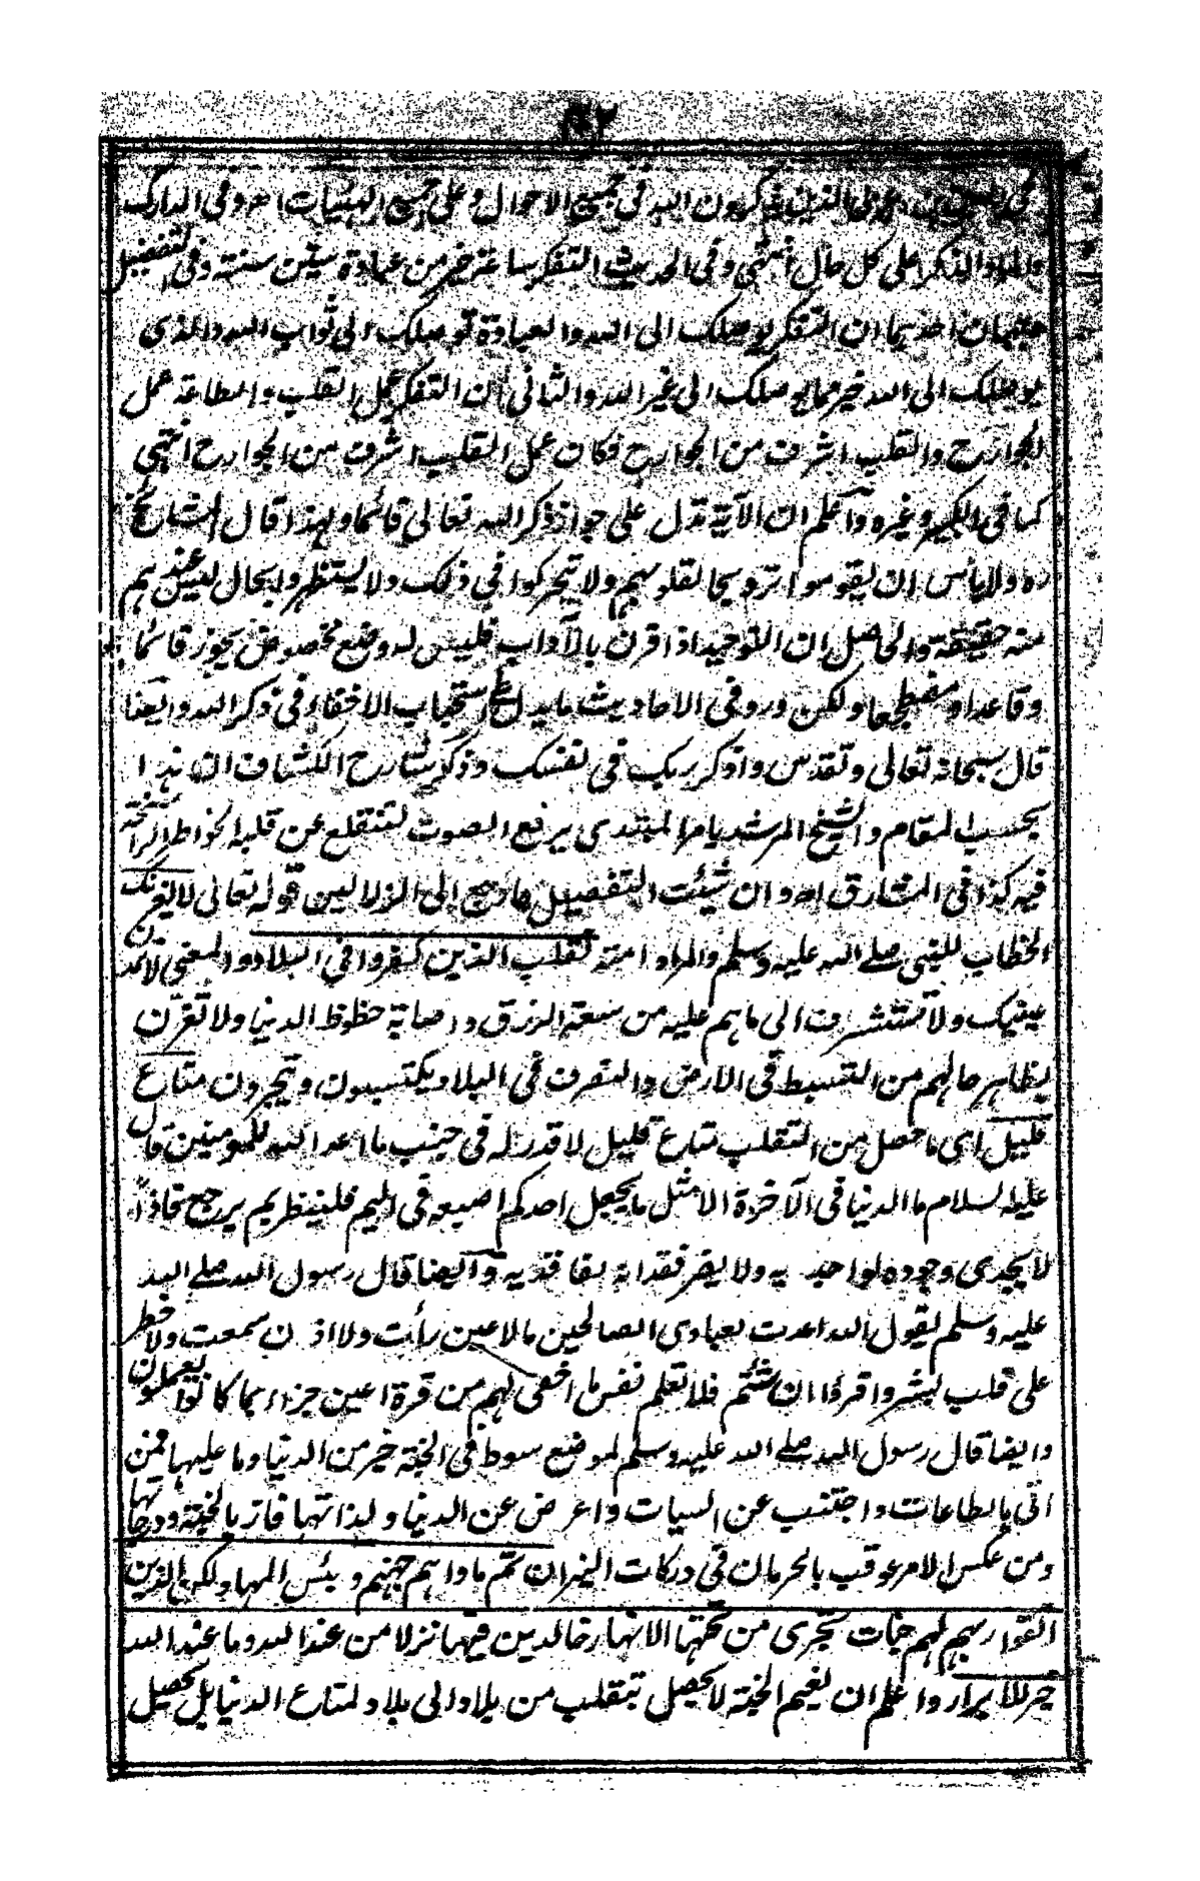 الذين يذكرون الله في جميع الاحوال وعلى جميع الهيئيات اه وفي المدارك
والمراد الذكر على كل حال انتهى وفي الحديث التفكر ساعة خير من عبادة ستين سنة وفي التفضيل
احديهما ان التفكر يوصلك الى الله والعبادة توصلك الى ثواب الله والذى
يوصلك الى الله خير مما يوصلك الى غير الله والثانى ان التفكر عمل القلب والطاعة عمل
الجوارح والقلب اشرف من الجوارح فكان عمل القلب اشرف من الجوارح انتهى
كما فى الكبير وغيره واعلم ان الآية تدل على جواز ذكر الله تعالى قائما ولهذا قال المشايخ
ره ولا بأس ان يقوموا ترويحا لقلوبهم ولا يتحركوا فى ذلك ولا يستظهروا بحال ليس عندهم
منه حقيقة والحاصل ان التوحيد اذا قرن بالآداب فليس له وضع مخصوص يجوز قائما
وقاعدا ومضطجعا ولكن ورد فى الاحاديث ما يدل على استحباب الاخفاء فى ذكر الله وايضا
قال سبحانه تعالى وتقدس واذكر ربك فى نفسك وذكر شارح الكشاف ان هذا
بحسب المقام والشيخ المرشد يامر المبتدى برفع الصوت لتنقلع عن قلبه الخواطر الراسخة
فيه كذا فى المشارق اه وان شئت التفصيل فارجع الى الزلالين قوله تعالى لا يغرنك
الخطاب للنبى صلے الله عليه وسلم والمراد امته تقلب الذين كفروا فى البلاد والمعنى لا تمدن
عينيك ولا تستشرف الى ما هم عليه من سعة الرزق واصابة حظوظ الدنيا ولا تغترن
بظاهر حالهم من التبسط فى الارض والتصرف فى البلاد يكتسبون ويتجرون متاع
قليل اى ما حصل من التقلب متاع قليل لا قدر له فى جنب ما اعد الله للمؤمنين قال
عليه لسلام ما الدنيا فى الآخرة الا مثل ما يجعل احدكم اصبعه فى اليم فلينظر بم يرجع فاذًا
لا يجدى وجوده لواجديه ولا يضر فقدانه لفاقديه وايضا قال رسول الله صلے الله
عليه وسلم يقول الله اعدت لعبادى الصالحين ما لا عين رأت ولا اذن سمعت ولا خطر
على قلب بشر واقرؤا ان شئتم فلا تعلم نفس ما اخفى لهم من قرة اعين جزاء بما كانوا يعملون
وايضا قال رسول الله صلے الله عليه وسلم لموضع سوط فى الجنة خير من الدنيا وما عليها فمن
اتى بالطاعات واجتنب عن السيات واعرض عن الدنيا ولذاتها فاز بالجنة ودرجاتها
ومن عكس الامر عوقب بالحرمان فى دركات النيران ثم ماواهم جهنم وبئس المهاد لكن الذين
اتقوا ربهم لهم جنات تجرى من تحتها الانهار خالدين فيها نزلا من عند الله وما عند الله
خير للابرار واعلم ان نعيم الجنة لا يحصل بتقلب من بلاد الى بلاد لمتاع الدنيا بل يحصل